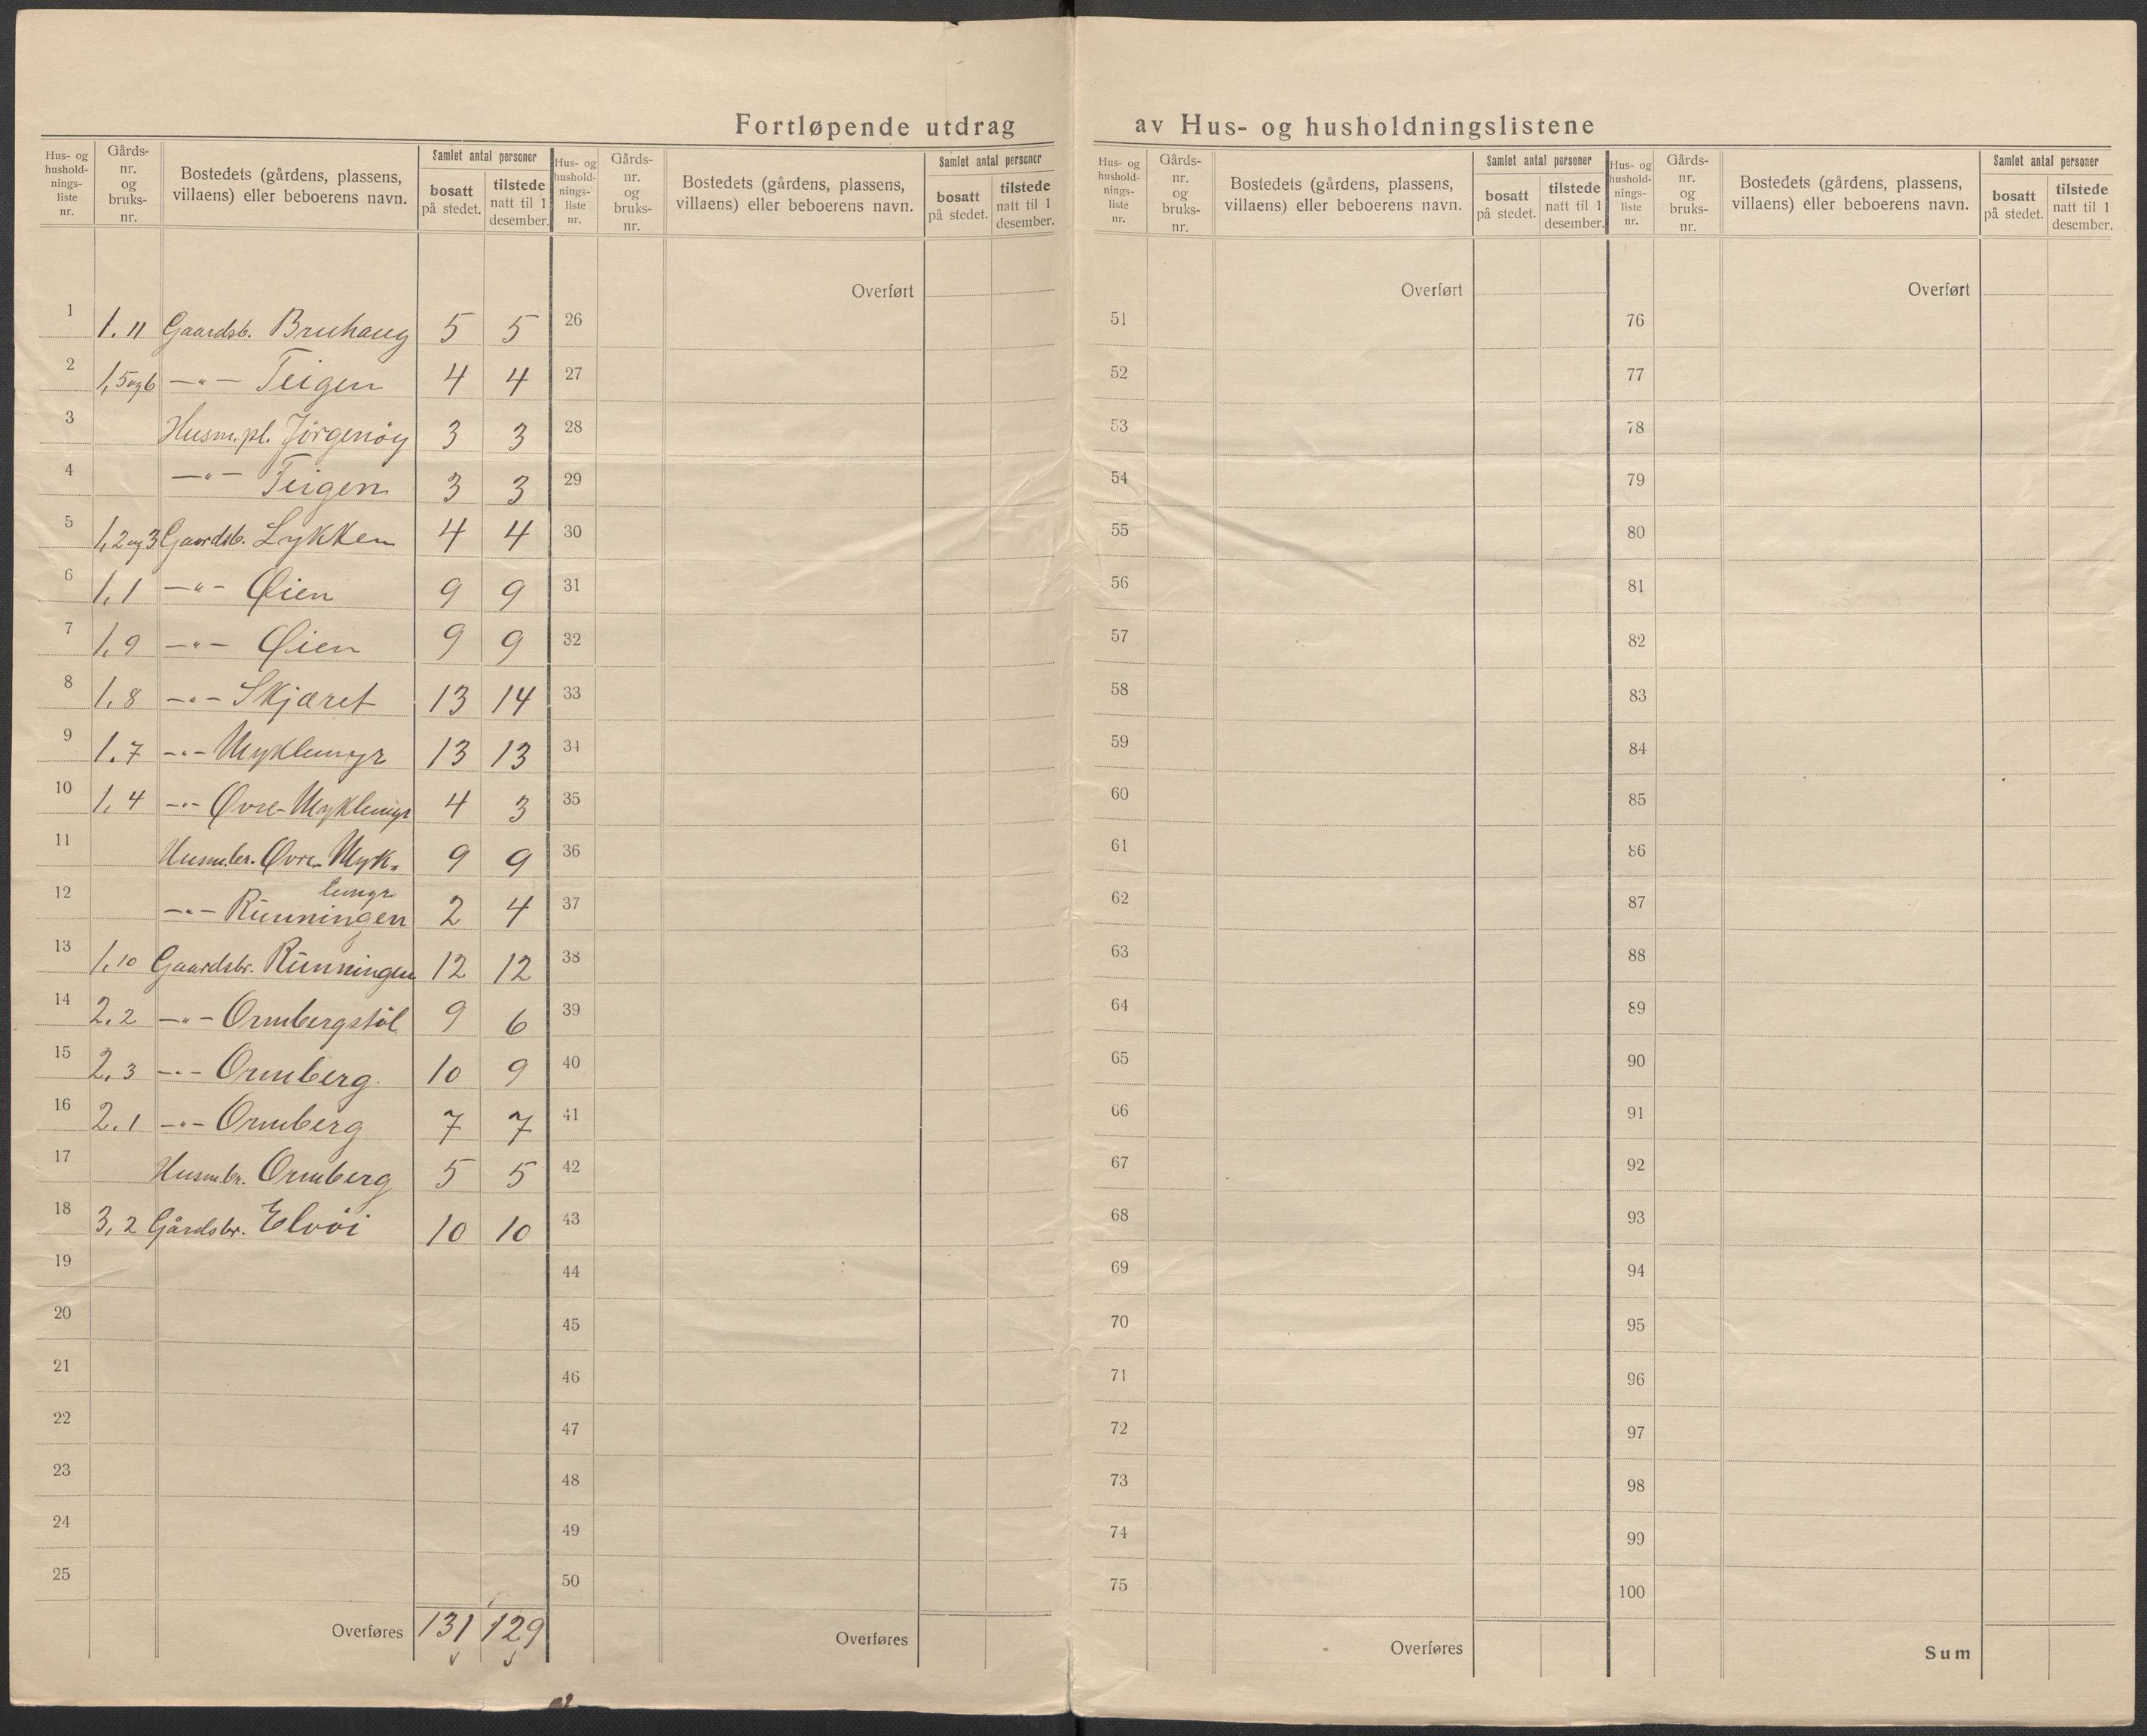 Fortløpende utdrag av Hus- og husholdningslistene
Hus- og hushold-nings-liste nr. Gårds-nr. og bruks-nr. Bostedets (gårdens, plassens, villaens) eller beboerens navn. Samlet antal personer bosatt på stedet. tilstede natt til 1 desember.
1 1.11 Gaardsb. Bruhaug 5 5
2 1,5og6 —"— Teigen 4 4
3 Husm.pl. Jörgenöy 3 3
4 —"— Teigen 3 3
5 1,2og3 Gaardsb. Lykken 4 4
6 1,1 —"— Øien 9 9
7 1,9 —"— Øien 9 9
8 1,8 —"— Skjæret 13 14
9 1.7 —"— Myklemyr 13 13
10 1,4 —"— Øvre-Myklemyr 4 3
11 Husm.br. Øvre Myk- 9 9
lemyr
12 —"— Runningen 2 4
13 1,10 Gaardsbr. Runningen 12 12
14 2.2 —"— Ormbergstöl 9 6
15 2.3 —"— Ormberg 10 9
16 2.1 —"— Ormberg 7 7
17 Husm.br. Ormberg 5 5
18 3,2 Gårdsbr. Elvöi 10 10
19
20
21
22
23
24
25
Overføres 131 129
Hus- og hushold-nings-liste nr. Gårds-nr. og bruks-nr. Bostedets (gårdens, plassens, villaens) eller beboerens navn. Samlet antal personer bosatt på stedet. tilstede natt til 1 desember.
Overført
26
27
28
29
30
31
32
33
34
35
36
37
38
39
40
41
42
43
44
45
46
47
48
49
50
Overføres
Hus- og hushold-nings-liste nr. Gårds-nr. og bruks-nr. Bostedets (gårdens, plassens, villaens) eller beboerens navn. Samlet antal personer bosatt på stedet. tilstede natt til 1 desember.
Overført
51
52
53
54
55
56
57
58
59
60
61
62
63
64
65
66
67
68
69
70
71
72
73
74
75
Overføres
Hus- og hushold-nings-liste nr. Gårds-nr. og bruks-nr. Bostedets (gårdens, plassens, villaens) eller beboerens navn. Samlet antal personer bosatt på stedet. tilstede natt til 1 desember.
Overført
76
77
78
79
80
81
82
83
84
85
86
87
88
89
90
91
92
93
94
95
96
97
98
99
100
Sum